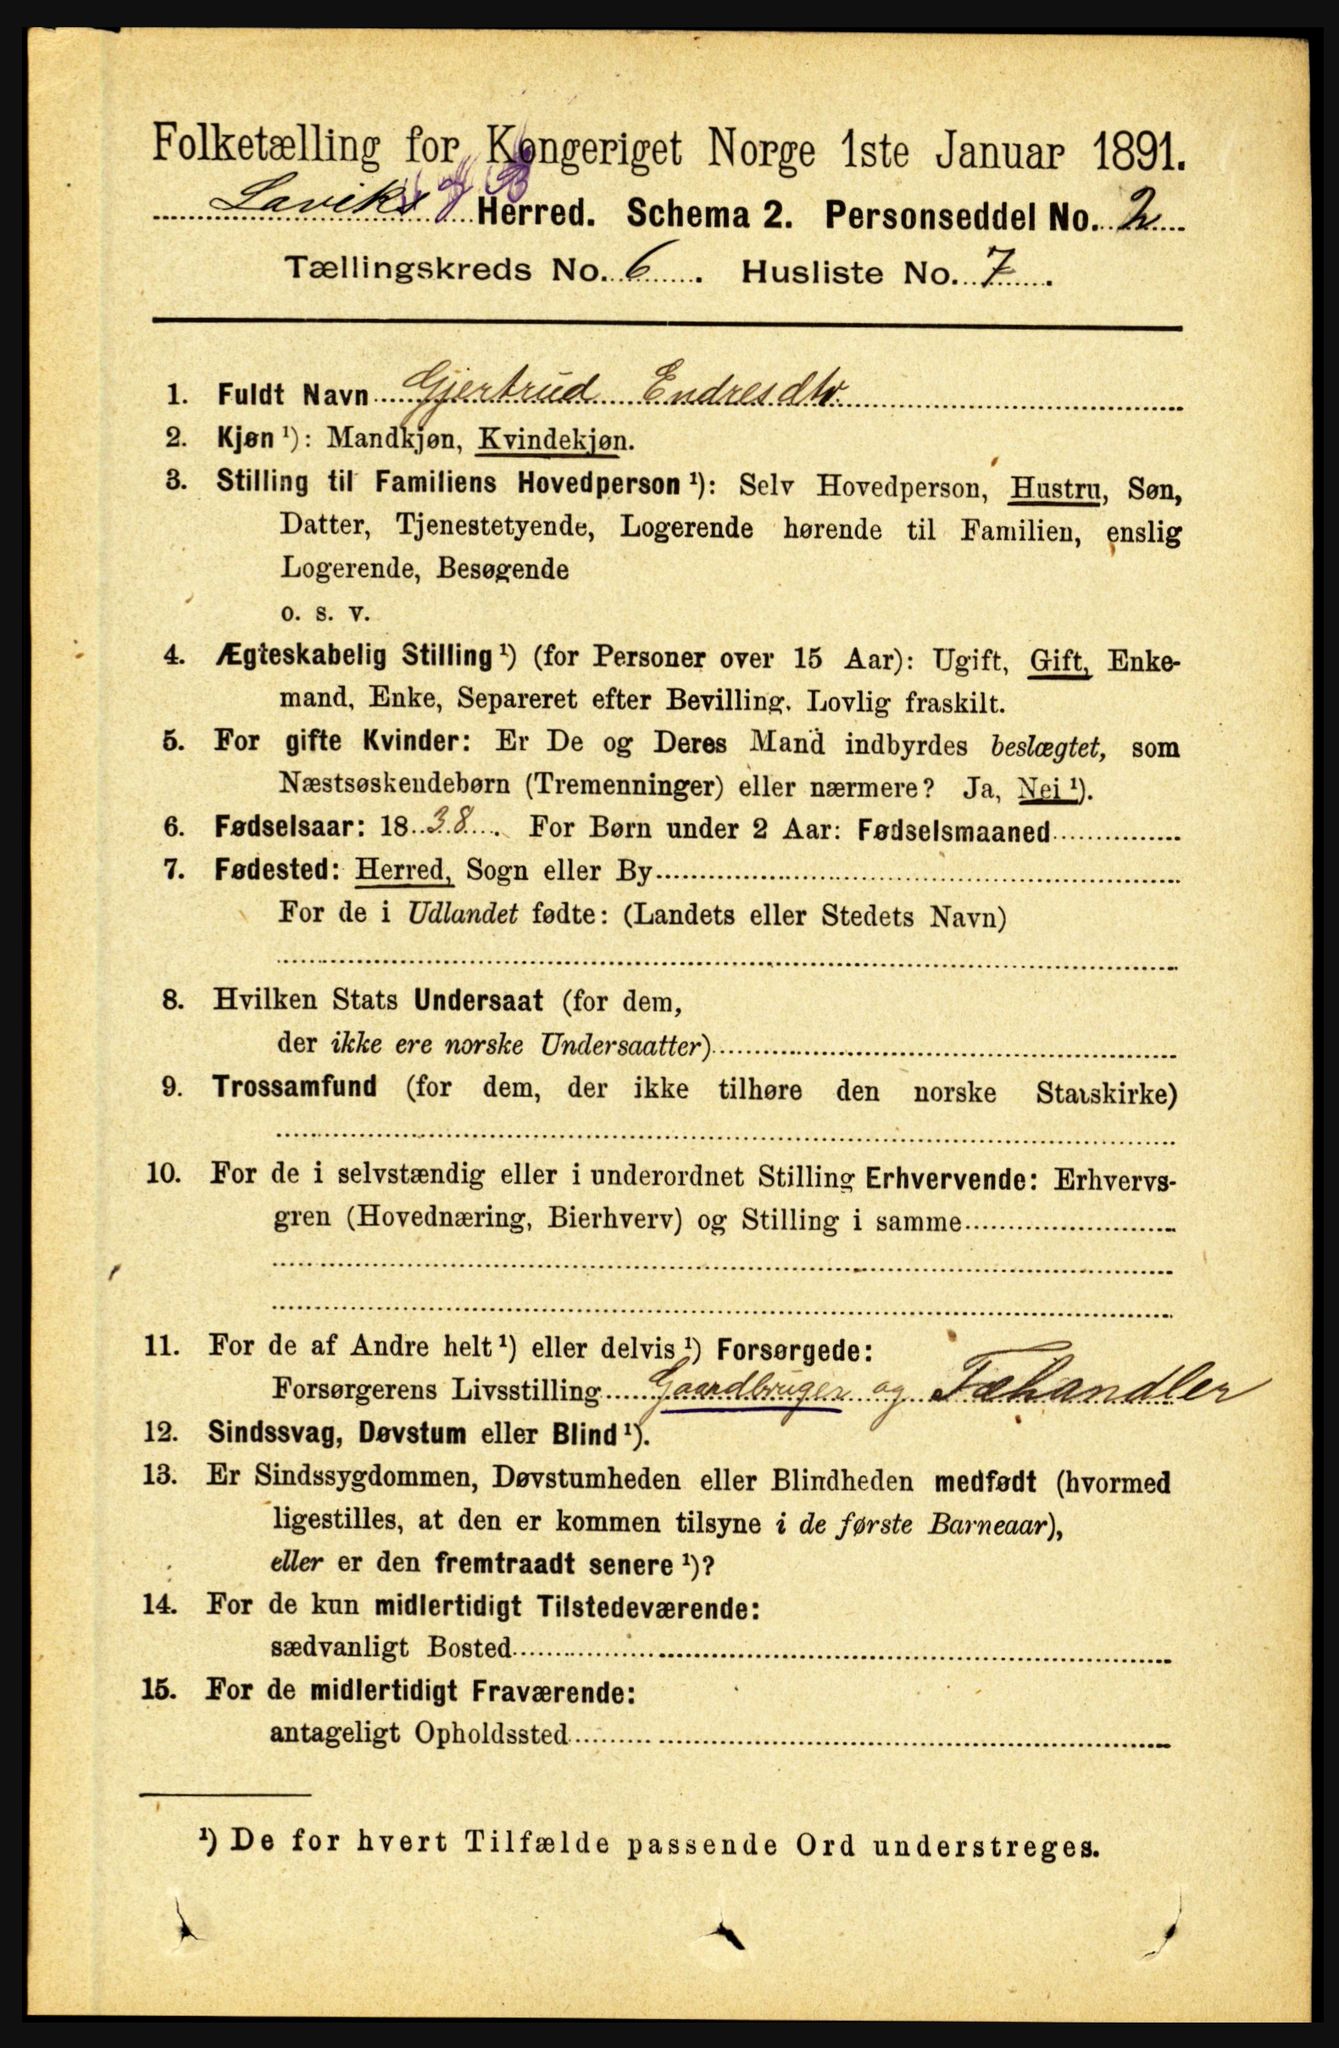 Folketælling for Kongeriget Norge 1ste Januar 1891.
Laviks & B Herred. Schema 2. Personseddel No. 2
Tællingskreds No. 6. Husliste No. 7.
1. Fuldt Navn Gjertrud Endresdtr
2. Kjøn ¹): Mandkjøn, Kvindekjøn.
3. Stilling til Familiens Hovedperson ¹): Selv Hovedperson, Hustru, Søn,
Datter, Tjenestetyende, Logerende hørende til Familien, enslig
Logerende, Besøgende
o. s. v.
4. Ægteskabelig Stilling ¹) (for Personer over 15 Aar): Ugift, Gift, Enke-
mand, Enke, Separeret efter Bevilling. Lovlig fraskilt.
5. For gifte Kvinder: Er De og Deres Mand indbyrdes beslægtet, som
Næstsøskendebørn (Tremenninger) eller nærmere? Ja, Nei ¹).
6. Fødselsaar: 1838. For Børn under 2 Aar: Fødselsmaaned
7. Fødested: Herred, Sogn eller By
For de i Udlandet fødte: (Landets eller Stedets Navn)
8. Hvilken Stats Undersaat (for dem,
der ikke ere norske Undersaatter)
9. Trossamfund (for dem, der ikke tilhøre den norske Statskirke)
10. For de i selvstændig eller i underordnet Stilling Erhvervende: Erhvervs-
gren (Hovednæring, Bierhverv) og Stilling i samme
11. For de af Andre helt ¹) eller delvis ¹) Forsørgede:
Forsørgerens Livsstilling Gaardbruger og Fæhandler
12. Sindssvag, Døvstum eller Blind ¹).
13. Er Sindssygdommen, Døvstumheden eller Blindheden medfødt (hvormed
ligestilles, at den er kommen tilsyne i de første Barneaar),
eller er den fremtraadt senere ¹)?
14. For de kun midlertidigt Tilstedeværende:
sædvanligt Bosted
15. For de midlertidigt Fraværende:
antageligt Opholdssted
¹) De for hvert Tilfælde passende Ord understreges.